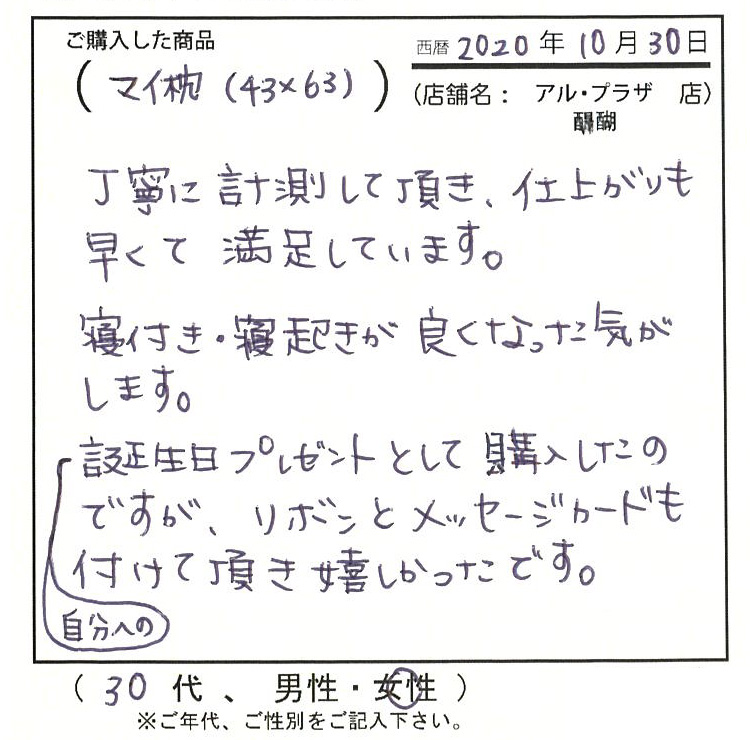 ご購入した商品
西暦 2020 年 10 月 30 日
( マイ枕 (43×63) )
(店舗名: アル・プラザ 店)
醍醐
丁寧に計測して頂き、仕上がりも
早くて 満足しています。
寝付き・寝起きが良くなった気が
します。
誕生日プレゼントとして購入したの
ですが、リボンとメッセージカードも
付けて頂き嬉しかったです。
自分への
( 30 代 、 男性・女性 )
※ご年代、ご性別をご記入下さい。